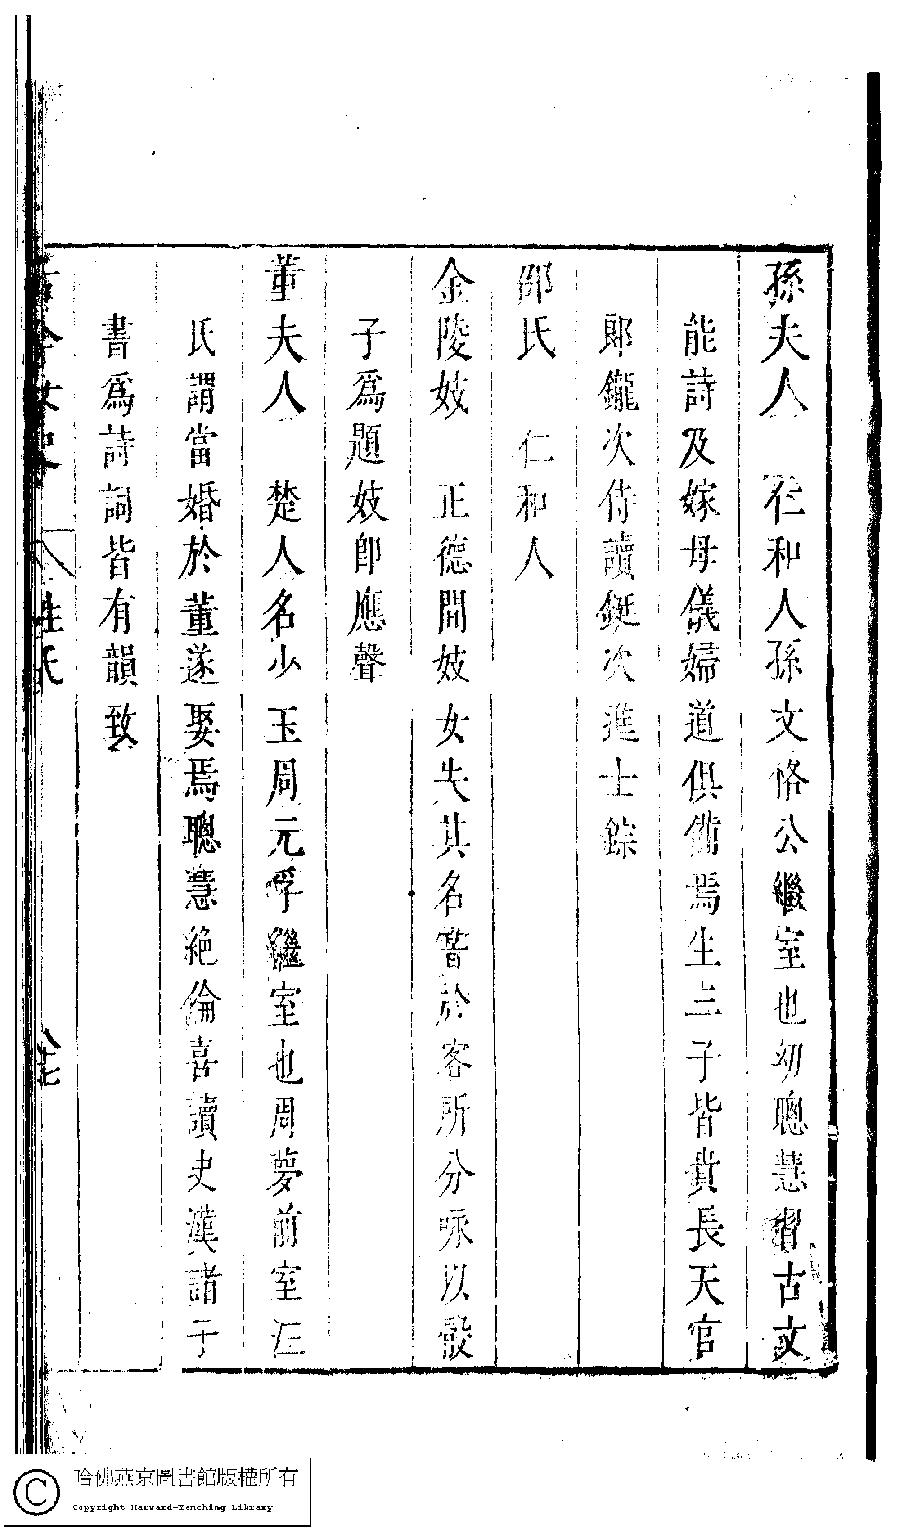 孫夫人 仁和人孫文恪公繼室也幼聰慧習古文
能詩及嫁母儀婦道俱備焉生三子皆貴長天官
郎鑨次侍讀鋌次進士錝
邵氏 仁和人
金陵妓 正德間妓女失其名嘗於客所分咏以骰
子為題妓即應聲
董夫人 楚人名少玉周元孚繼室也周夢前室汪
氏謂當婚於董遂娶焉聰慧絕倫喜讀史漢諸子
書為詩詞皆有韻致
古今女史 姓氏
哈佛燕京圖書館版權所有
Copyright Harvard-Yenching Library